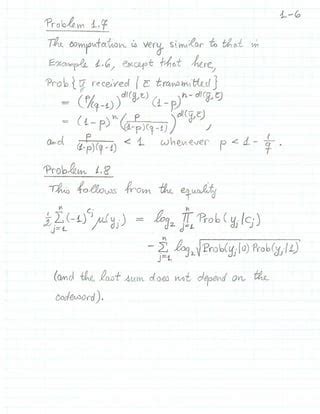 1-6
Problem 1.7
The computation is very similar to that in
Example 1.6, except that here,
Prob{ȳ received | c̄ transmitted}
= (p/(q-1))^{d(ȳ,c̄)} (1-p)^{n-d(ȳ,c̄)}
= (1-p)^n (p/((1-p)(q-1)))^{d(ȳ,c̄)},
and p/((1-p)(q-1)) < 1 whenever p < 1 - 1/q.
Problem 1.8
This follows from the equality
1/2 Σ_{j=1}^{n} (-1)^{c_j} μ(y_j) = log₂ Π_{j=1}^{n} Prob(y_j|c_j)
- Σ_{j=1}^{n} log₂ √(Prob(y_j|0) Prob(y_j|1))
(and the last sum does not depend on the
codeword).